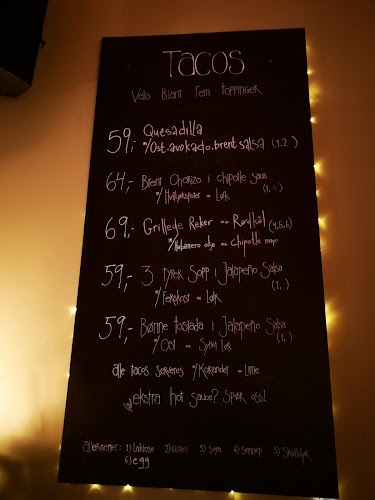 TACOS
Velg Blant Fem Toppinger
59,- Quesadilla
m/Ost.avokado.brent salsa (1,2)
64,- Brent Chorizo i chipotle saus
m/Hvitløkspoter og Løk (1,4)
69,- Grillede Reker og Rødkål (4,5,6)
m/Habanero olje og chipotle mayo
59,- 3 typer Sopp i Jalapeño Salsa
m/Ferskost og Løk (1,)
59,- Bønne tostada i Jalapeño Salsa
m/Ost og Syltet Løk (1,)
Alle tacos serveres m/Koriander og Lime
ekstra hot sauce? Spør oss!
Allergener: 1) Laktose 2) Gluten 3) Soya 4) Sennep 5) Skalldyr
6) egg